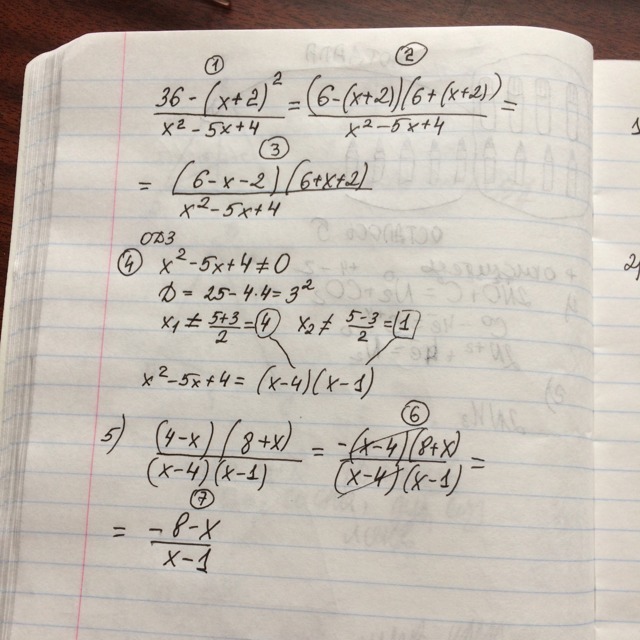 ① ②
36 - (x+2)² / x² - 5x+4 = (6-(x+2))(6+(x+2)) / x² - 5x+4 =
③
= (6-x-2)(6+x+2) / x² - 5x+4
ОДЗ
④ x² - 5x+4 ≠ 0
D = 25 - 4·4 = 3²
x₁ ≠ 5+3 / 2 = 4 x₂ ≠ 5-3 / 2 = 1
x² - 5x+4 = (x-4)(x-1)
⑥
5) (4-x)(8+x) / (x-4)(x-1) = -(x-4)(8+x) / (x-4)(x-1) =
⑦
= -8-x / x-1
1
2)